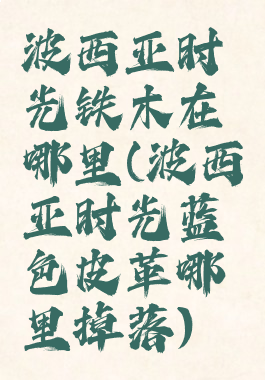 波西亚时
光铁木在
哪里(波西
亚时光蓝
色皮革哪
里掉落)